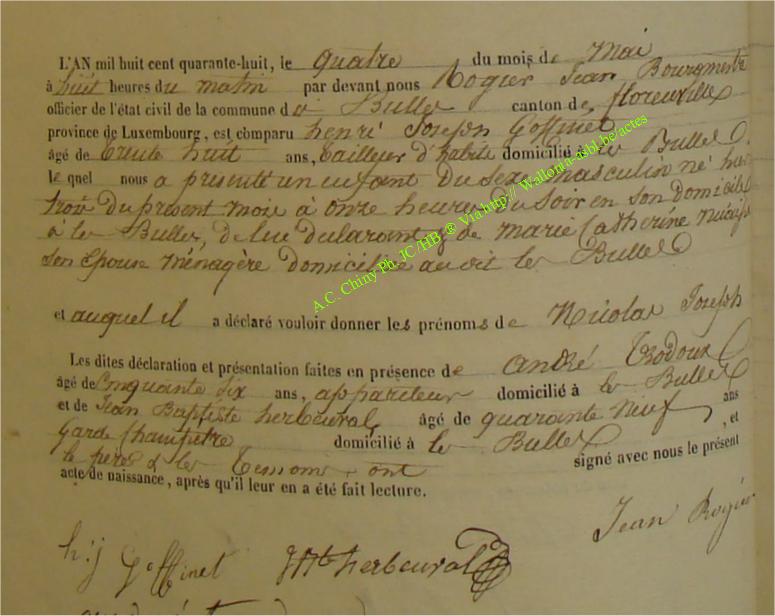 L'AN mil huit cent quarante-huit, le quatre du mois de Mai
à huit heures du matin par devant nous Rogier Jean Bourgmestre
officier de l'état civil de la commune de Bulles canton de florenville
province de Luxembourg, est comparu henri Joseph Goffinet
âgé de trente huit ans, tailleur d'habits domicilié à les Bulles
le quel nous a présenté un enfant du sexe masculin né hier
trois du présent mois à onze heures du soir en son domicile
à les Bulles, de lui déclarant et de marie Catherine
son épouse ménagère domiciliée au dit les Bulles
et auquel il a déclaré vouloir donner les prénoms de Nicolas Joseph
Les dites déclaration et présentation faites en présence de andré Trodoux
âgé de Cinquante six ans, appariteur domicilié à les Bulles
et de Jean Baptiste herbeuval âgé de quarante neuf ans
Garde Champetre domicilié à les Bulles, et
le pere et les temoins ont signé avec nous le présent
acte de naissance, après qu'il leur en a été fait lecture.
Jean Rogier
h: j Goffinet JBte herbeuval
A.C. Chiny Ph. JC/HB ® Via http:// Wallonia-asbl.be/actes